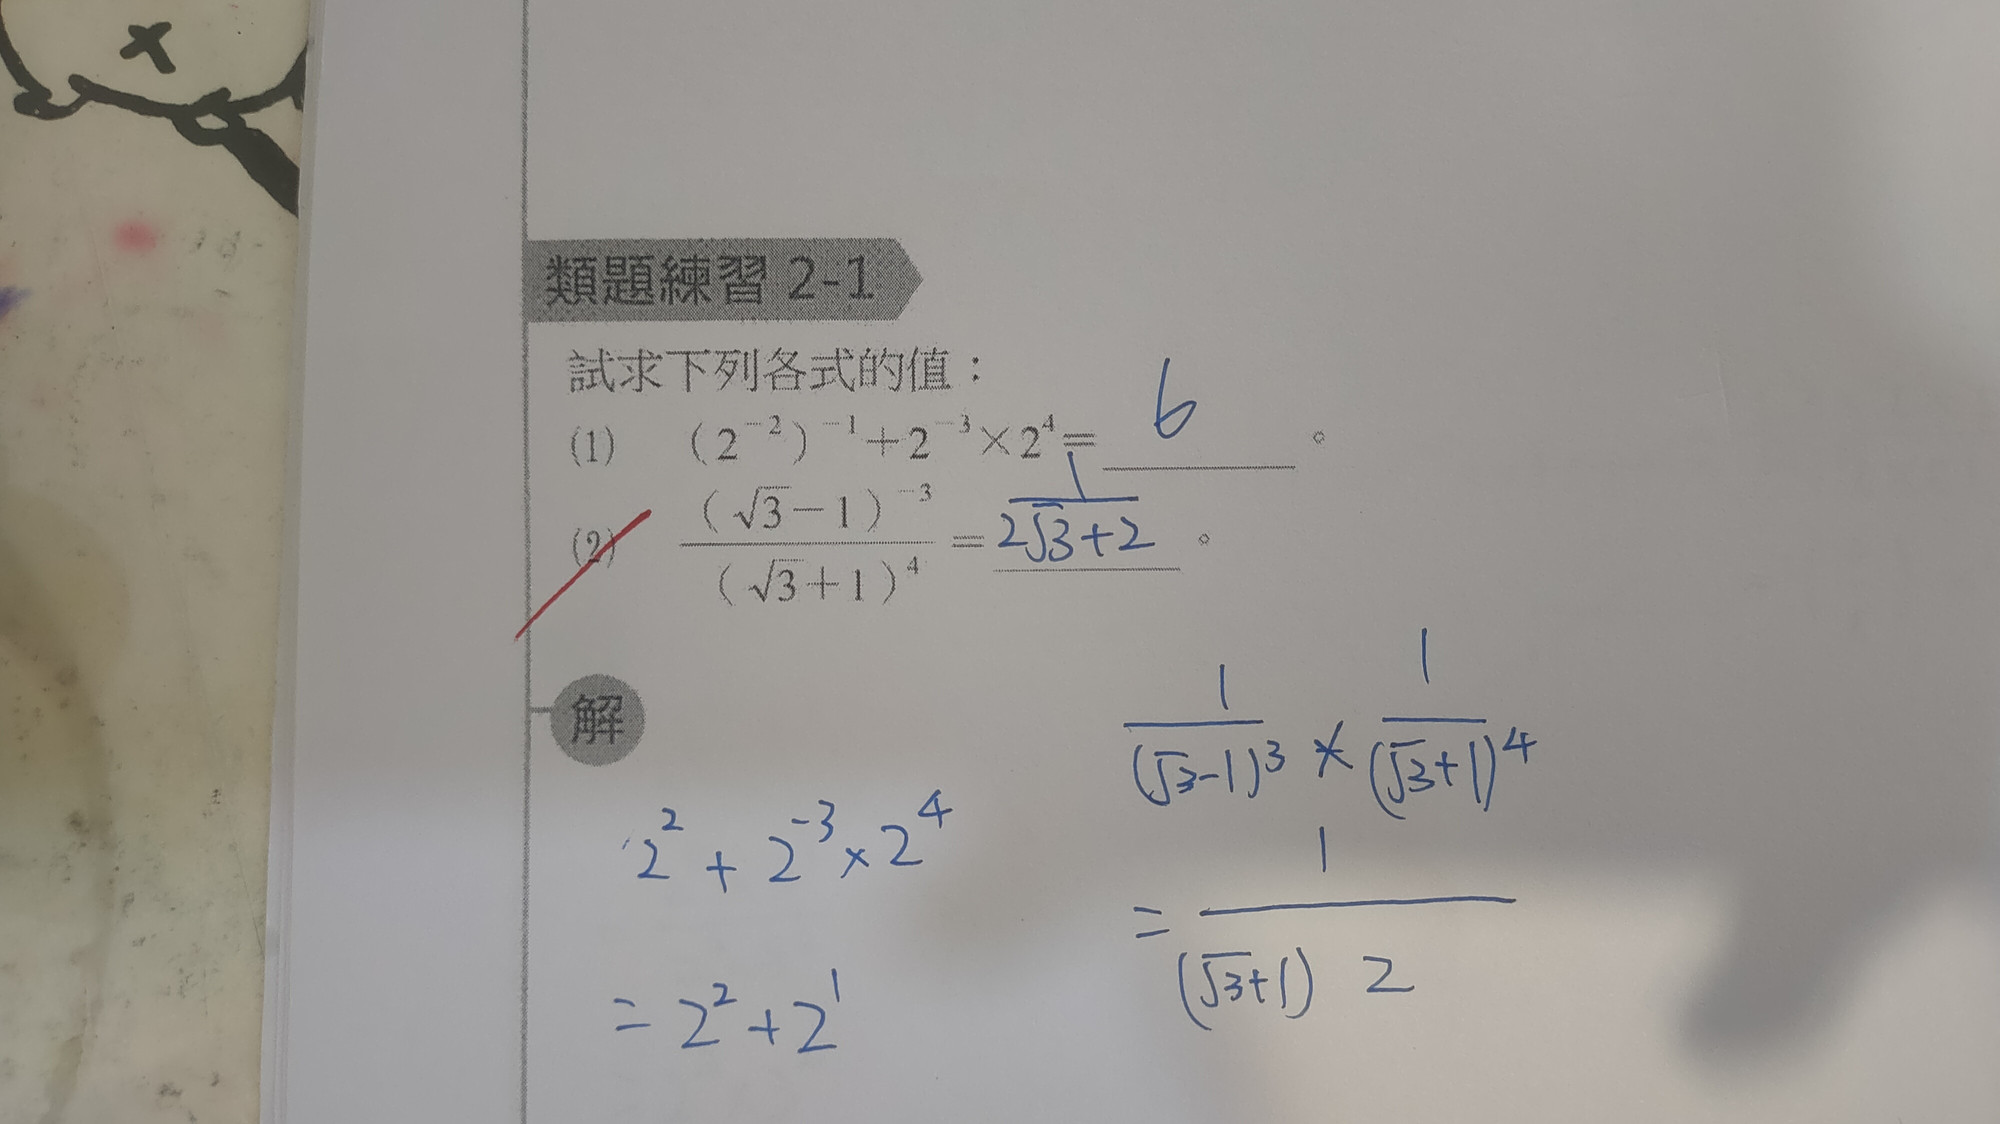 類題練習 2-1
試求下列各式的值：
(1) (2⁻²)⁻¹+2⁻³×2⁴= 6 。
(2) (√3−1)⁻³/(√3+1)⁴ = 1/(2√3+2) 。
解
2² + 2⁻³ × 2⁴
= 2² + 2¹
1/(√3-1)³ × 1/(√3+1)⁴
= 1/((√3+1) 2)